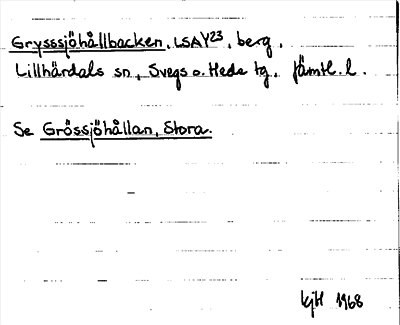 Grysssjöhållbacken, LSAY23, berg,
Lillhärdals sn, Svegs o. Hede tg, Jämtl. l.
Se Grössjöhållan, Stora.
kjH 1968